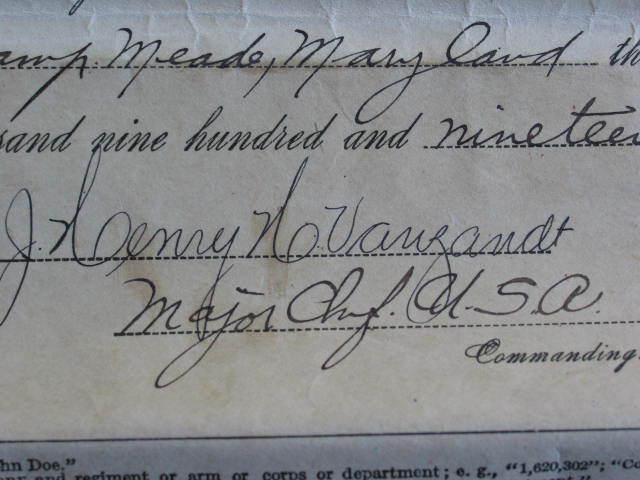 amp Meade, Maryland th
sand nine hundred and nineteen
J. Henry H. Vanzandt
Major U.S.A.
Commanding.
hn Doe."
and regiment or arm or corps or department; e. g., "1,620,302"; "Co